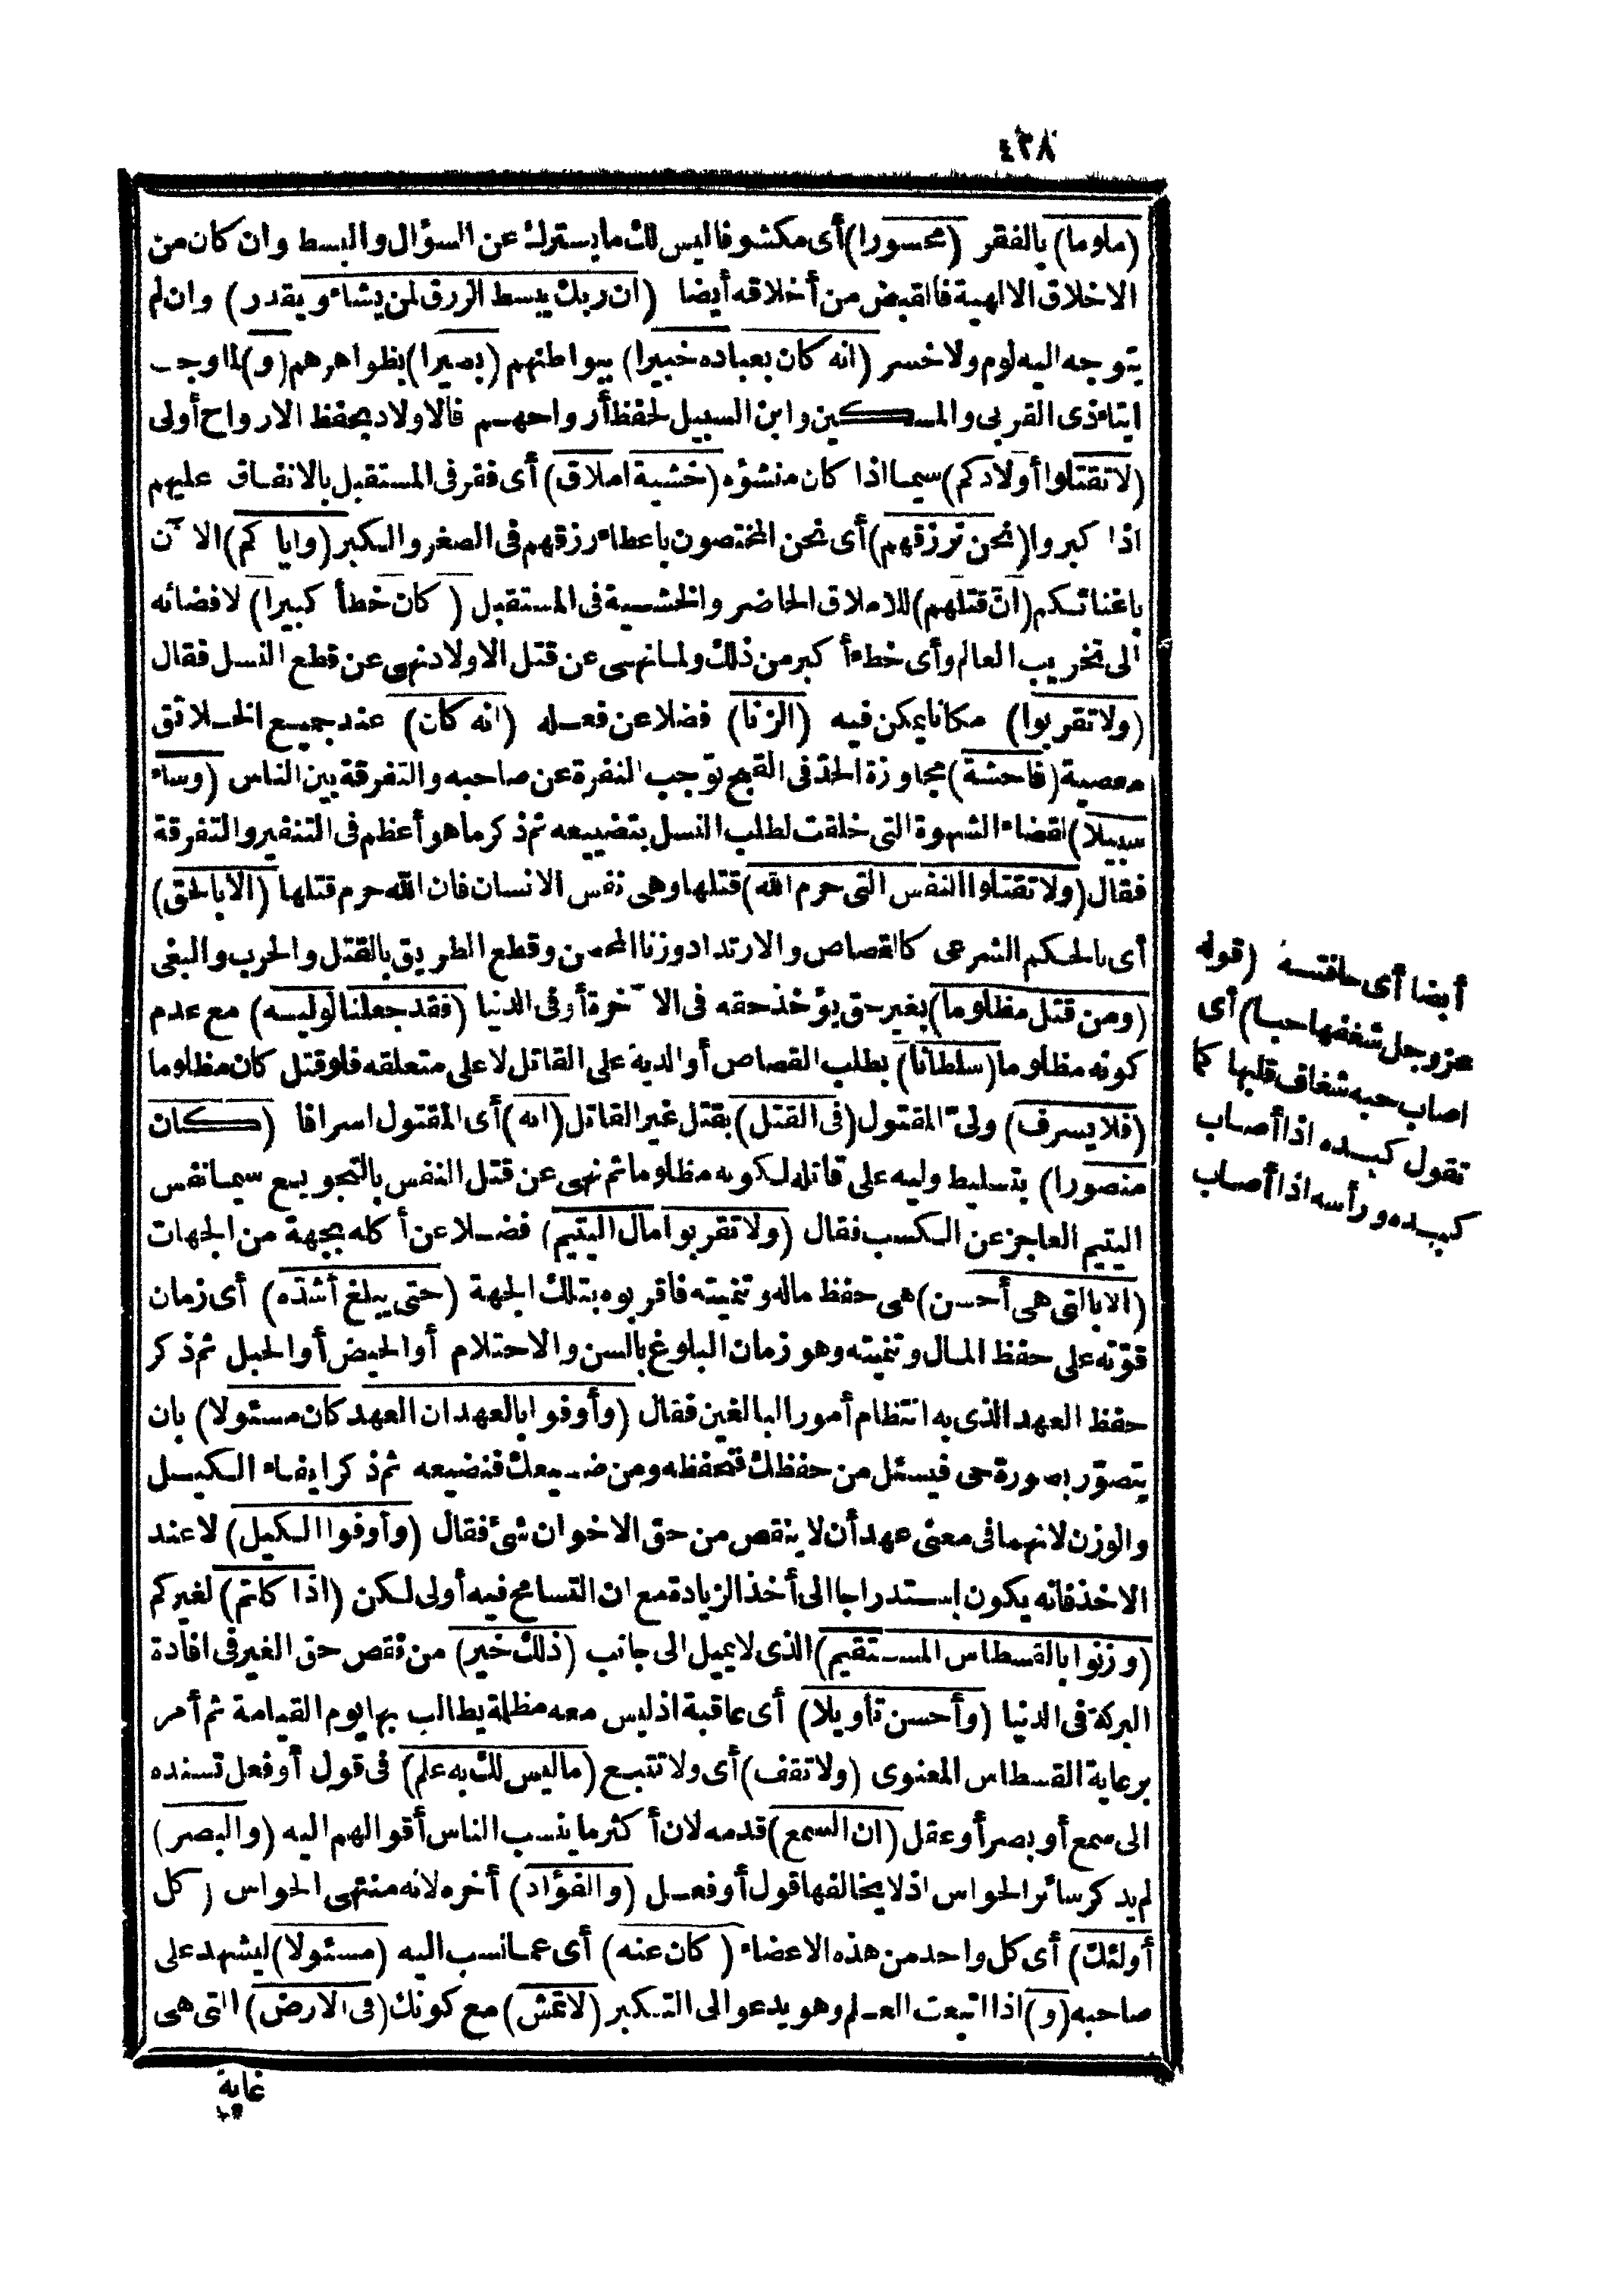 ٤٢٨
(ملوما) بالفقر (محسورا) أى مكشوفا ليس لك ما يسترك عن السؤال والبسط وان كان من
الاخلاق الالهية فالقبض من أخلاقه أيضا (ان ربك يبسط الرزق لمن يشاء ويقدر) وان لم
يتوجه اليه لوم ولا خسر (انه كان بعباده خبيرا) ببواطنهم (بصيرا) بظواهرهم (و) لما وجب
ايتاء ذى القربى والمسكين وابن السبيل لحفظ أرواحهم فالاولاد بحفظ الارواح أولى
(لا تقتلوا أولادكم) سيما اذا كان منشؤه (خشية املاق) أى فقر فى المستقبل بالانفاق عليهم
اذا كبروا (نحن نرزقهم) أى نحن المختصون باعطاء رزقهم فى الصغر والكبر (واياكم) الآن
باغنائكم (ان قتلهم) للاملاق الحاضر والخشية فى المستقبل (كان خطأ كبيرا) لافضائه
الى تخريب العالم وأى خطء أكبر من ذلك ولما نهى عن قتل الاولاد نهى عن قطع النسل فقال
(ولا تقربوا) مكانا يمكن فيه (الزنا) فضلا عن فعله (انه كان) عند جميع الخلائق
معصية (فاحشة) مجاوزة الحد فى القبح توجب النفرة عن صاحبه والتفرقة بين الناس (وساء
سبيلا) لقضاء الشهوة التى خلقت لطلب النسل بتضييعه ثم ذكر ما هو أعظم فى التنفير والتفرقة
فقال (ولا تقتلوا النفس التى حرم الله) قتلها وهى نفس الانسان فان الله حرم قتلها (الا بالحق)
أى بالحكم الشرعى كالقصاص والارتداد وزنا المحصن وقطع الطريق بالقتل والحرب والبغى
(ومن قتل مظلوما) بغير حق يؤخذ حقه فى الآخرة أو فى الدنيا (فقد جعلنا لوليه) مع عدم
كونه مظلوما (سلطانا) بطلب القصاص أو الدية على القاتل لا على متعلقه فلو قتل كان مظلوما
(فلا يسرف) ولىّ المقتول (فى القتل) بقتل غير القاتل (انه) أى المقتول اسرافا (كان
منصورا) بتسليط وليه على قاتله لكونه مظلوما ثم نهى عن قتل النفس بالتجويع سيما نفس
اليتيم العاجز عن الكسب فقال (ولا تقربوا مال اليتيم) فضلا عن أكله بجهة من الجهات
(الا بالتى هى أحسن) هى حفظ ماله وتنميته فاقربوه بتلك الجهة (حتى يبلغ أشدّه) أى زمان
قوّته على حفظ المال وتنميته وهو زمان البلوغ بالسن والاحتلام أو الحيض أو الحبل ثم ذكر
حفظ العهد الذى به انتظام أمور البالغين فقال (وأوفوا بالعهد ان العهد كان مسئولا) بان
يتصوّر بصورة حى فيسئل من حفظك فتحفظه ومن ضيعك فتضيعه ثم ذكر ايفاء الكيل
والوزن لانهما فى معنى عهد أن لا ينقص من حق الاخوان شئ فقال (وأوفوا الكيل) لا عند
الاخذ فانه يكون استدراجا الى أخذ الزيادة مع ان التسامح فيه أولى لكن (اذا كلتم) لغيركم
(وزنوا بالقسطاس المستقيم) الذى لا يميل الى جانب (ذلك خير) من نقص حق الغير فى افادة
البركة فى الدنيا (وأحسن تأويلا) أى عاقبة اذ ليس معه مظلمة يطالب بها يوم القيامة ثم أمر
برعاية القسطاس المعنوى (ولا تقف) أى ولا تتبع (ما ليس لك به علم) فى قول أو فعل تسنده
الى سمع أو بصر أو عقل (ان السمع) قدمه لان أكثر ما ينسب الناس أقوالهم اليه (والبصر)
لم يذكر سائر الحواس اذ لا يخالفها قول أو فعل (والفؤاد) أخره لانه منتهى الحواس (كل
أولئك) أى كل واحد من هذه الاعضاء (كان عنه) أى عما نسب اليه (مسئولا) ليشهد على
صاحبه (و) اذا اتبعت العلم وهو يدعو الى التكبر (لا تمش) مع كونك (فى الارض) التى هى
غاية
أيضا أى حافتسه (قوله
عز وجل شغفها حبا) أى
اصاب حبه شغاف قلبها كما
تقول كبده اذا أصاب
كبده ورأسه اذا أصاب